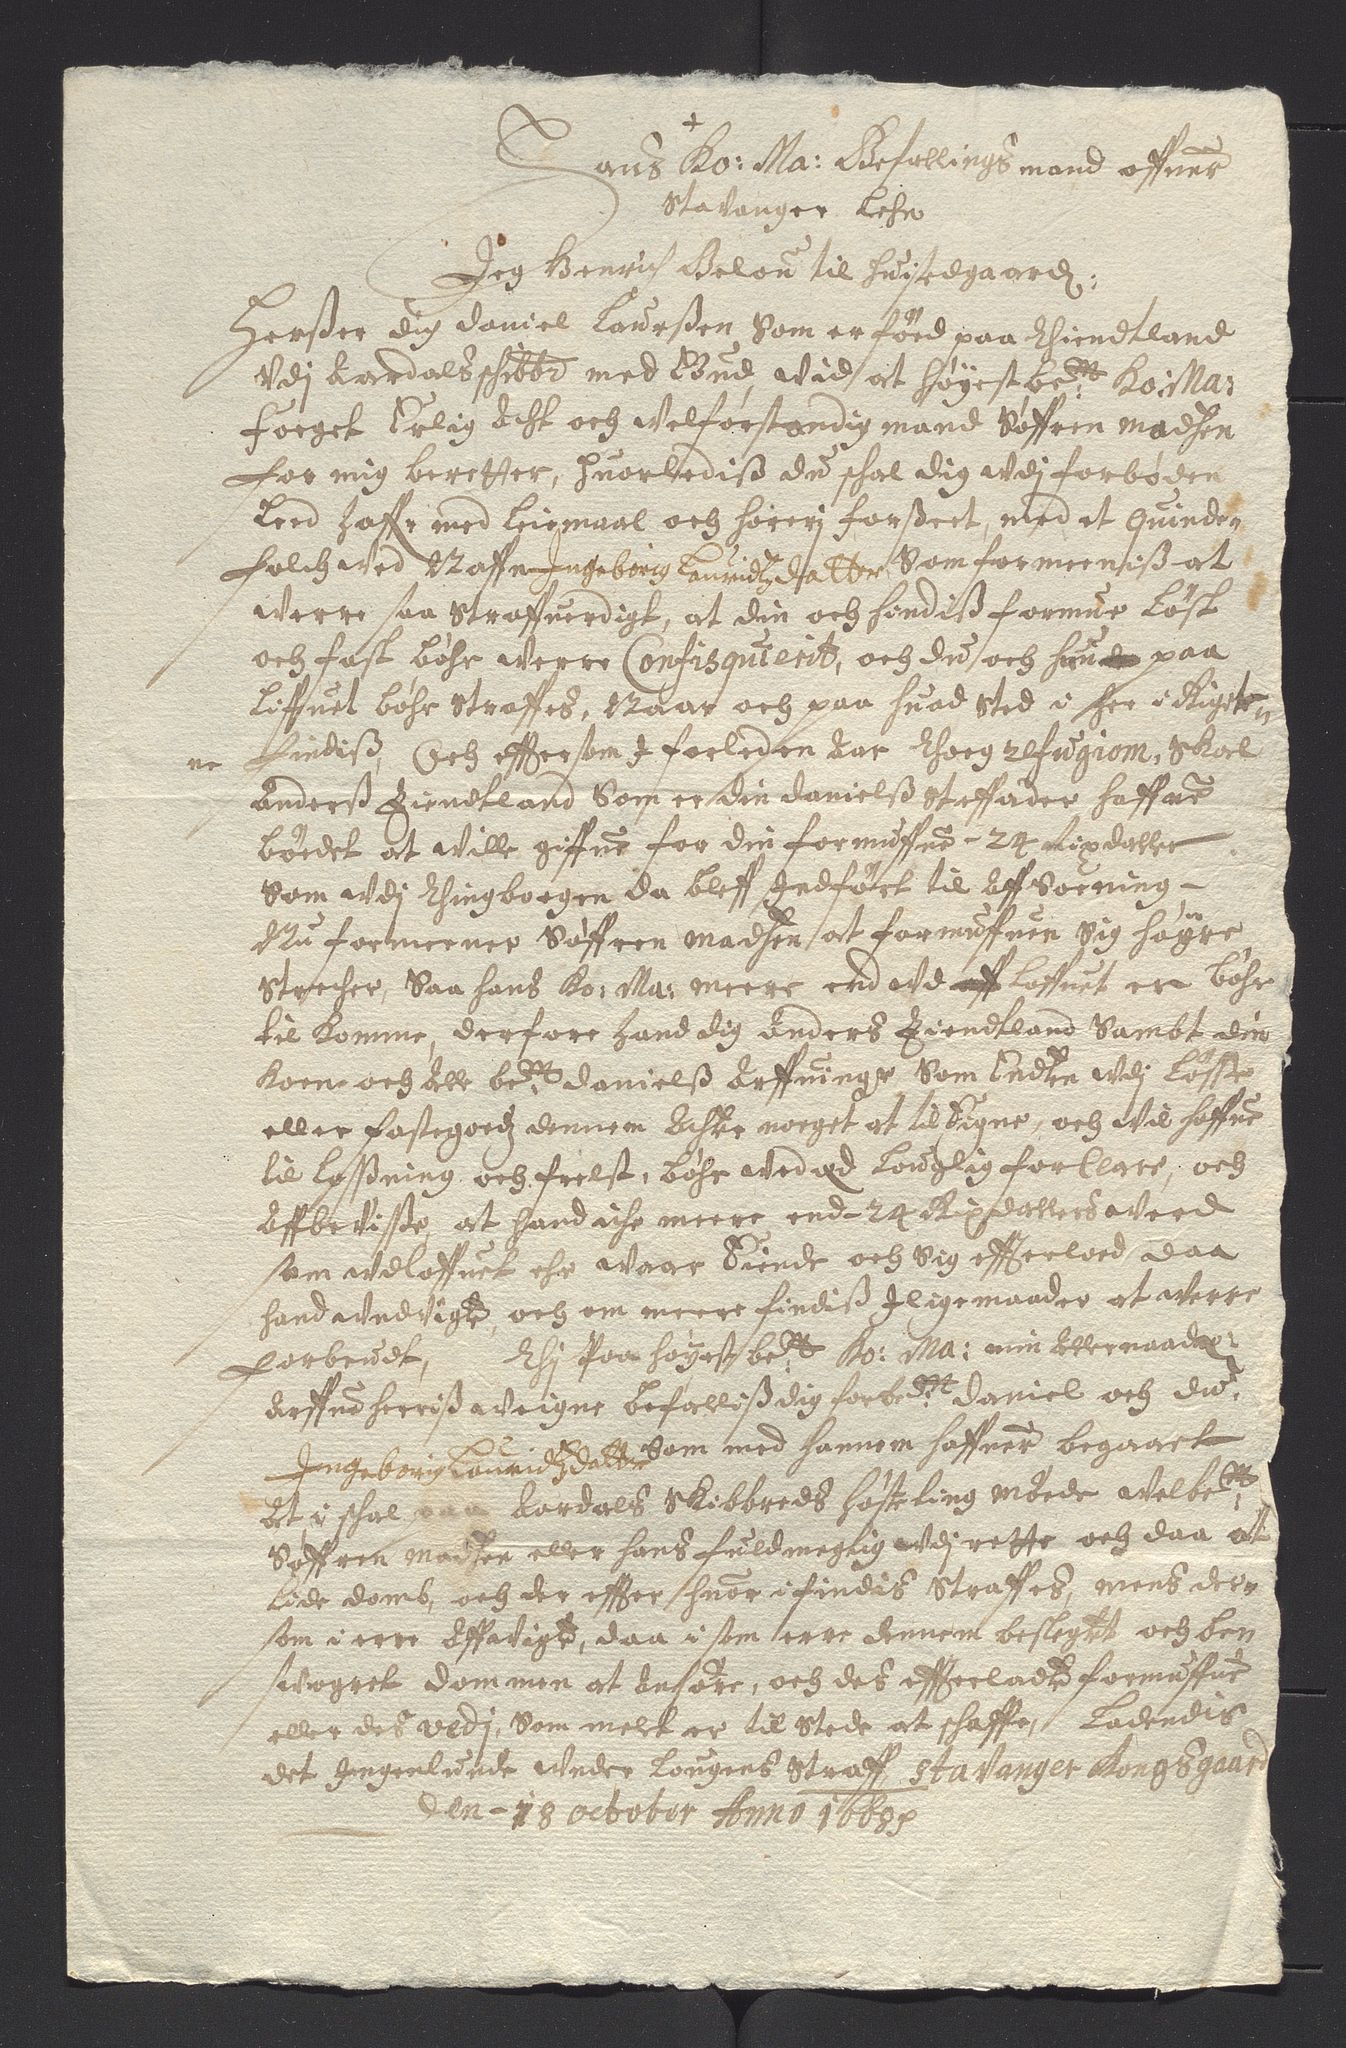 Hans Ko: Ma: Befallings mand offuer
Stavanger Lehn
Jeg Henrich Below til huistedgaard:
Hersser dig Daniel Laurssen som er föed paa Thiendtland
vdj Aardals schibbr: med Bud, wid at höyest bete: Ko: Ma:
foeget Erlig Acht och welforstandig mand Söffren Madsen
for mig beretter, huorlediss du schal dig vdj forböden
Leed haffe med Leiemaal och horerj forsseet, med et quinde
folch ved Naffn Ingeborig Lauridtzdatter Som formeeniss at
werre saa straffuerdigt, at din och hindiss formue Löst
och fast böhr werre Confisquerit, och du och hun paa
Liffuet böhr straffes, Naar och paa huad sted i her i Rigete
ne findiss, Och effter som J forleden Aar thoeg refugiom, Skael
Anderss Tiendtland som er din danielss steffader haffue
böedet at wille giffue for din formuffue 24 rixdaller
som vdj thingboegen da bleff Indfört til Aff Soening
Nu formeener Söffren Madsen at formuffuen sig höyre
strecher, Saa hans Ko: Ma: meere end vd loffuet er böhr
til komme, derfore hand dig Anders Tiendtland sambt din
Kone och Alle bete: danielss Arffuinge som Enten vdj Lösse
eller fastegoedtz dennem Achte noeget at til Eigne, och wil haffue
til Lössning och frelst, böhr wed eed Louglig forclare, och
Affbevisse, at hand iche meere end 24 Rixdallers werd
som vdloffuet ehr waar Eiende och sig effterloed daa
hand undvigte, och om meere findiss Iligemaader at werre
forbrudt, Thj Paa höyest bete: Ko: Ma: min Allernaadigste
Arffue herriss weigne befalliss dig forbete: Daniel och du
Ingeborig Lauridtzdatter som med hannem haffuer begaaet
At i schal paa Aardals Skibbreds hösteting möede welbete:
Söffren Madsen eller hans fuldmegtig vdj rette och daa at
lide domb, och der effter huor i findis straffes, mens der
som i erre Affvigte, daa i som erre dennem beslegtet och be
swogret dommen at Anhöre, och des effterladte formuffue
eller des verdj, som melt er til stede at schaffe, Ladendis
det Ingenlunde under Lougens straff, Stavanger Kongsgaard
den 18 October Anno 1663